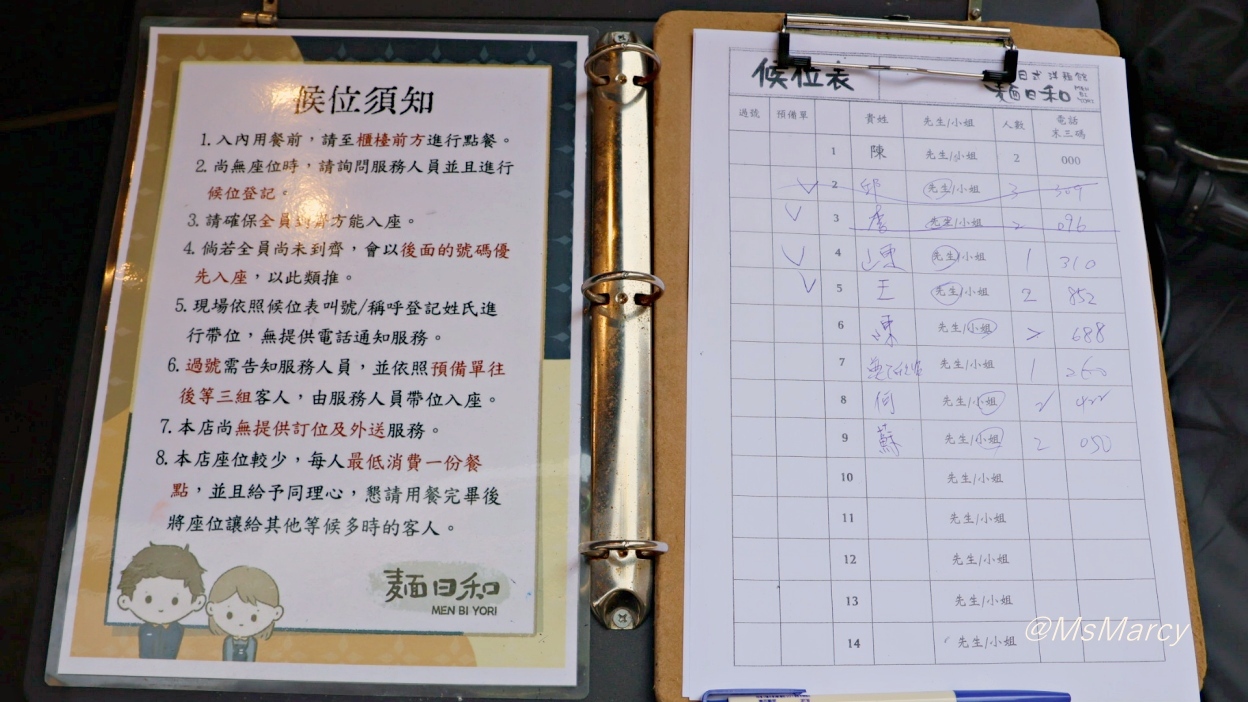 候位須知
1. 入內用餐前，請至櫃檯前方進行點餐。
2. 尚無座位時，請詢問服務人員並且進行
候位登記。
3. 請確保全員到齊方能入座。
4. 倘若全員尚未到齊，會以後面的號碼優
先入座，以此類推。
5. 現場依照候位表叫號/稱呼登記姓氏進
行帶位，無提供電話通知服務。
6. 過號需告知服務人員，並依照預備單往
後等三組客人，由服務人員帶位入座。
7. 本店尚無提供訂位及外送服務。
8. 本店座位較少，每人最低消費一份餐
點，並且給予同理心，懇請用餐完畢後
將座位讓給其他等候多時的客人。
麵日和
MEN BI YORI
候位表
日式拌麵館
麵日和 MEN BI YORI
過號 預備單 貴姓 先生/小姐 人數 電話末三碼
1 陳 先生/小姐 2 000
2 邱 先生/小姐 3 309
3 李 先生/小姐 2 096
4 陳 先生/小姐 1 310
5 王 先生/小姐 2 852
6 陳 先生/小姐 2 688
7 先生/小姐 1 260
8 何 先生/小姐 2 422
9 蘇 先生/小姐 2 050
10 先生/小姐
11 先生/小姐
12 先生/小姐
13 先生/小姐
14 先生/小姐
@MsMarcy